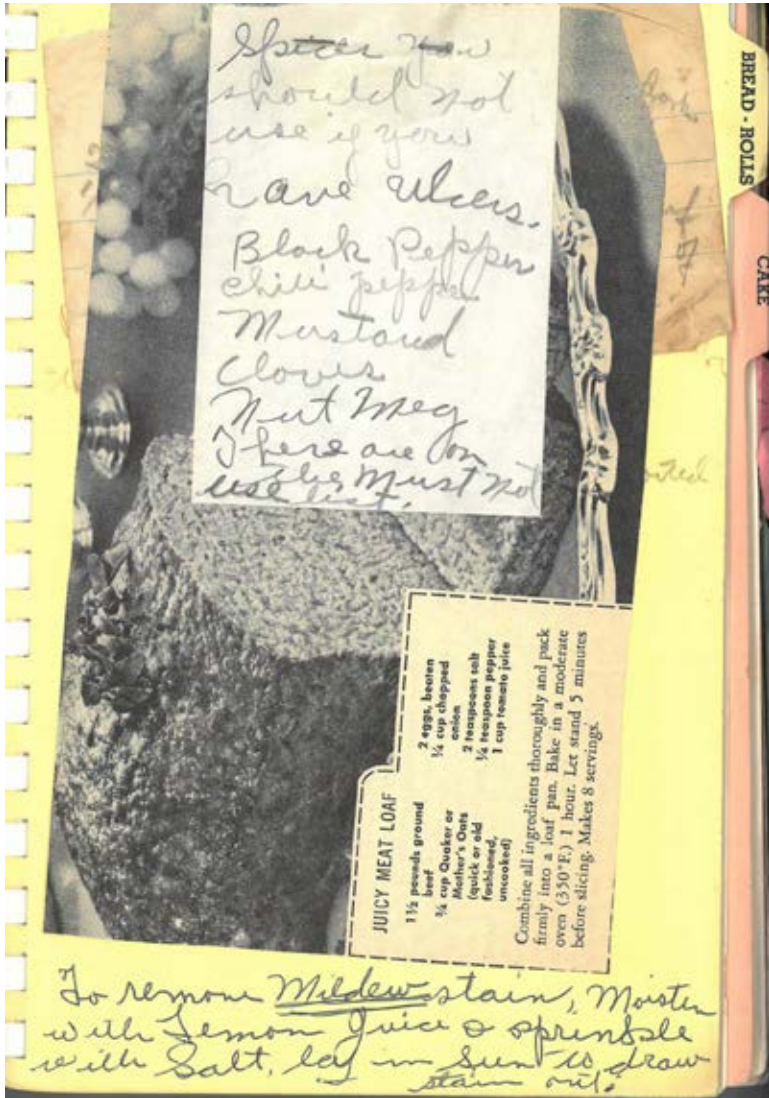 Spices you
should not
use if you
have ulcers.
Black Pepper
chili pepper
Mustard
Cloves
Nut Meg
These are on
the Must not
use list.
BREAD - ROLLS
CAKE
JUICY MEAT LOAF
1½ pounds ground
beef
¾ cup Quaker or
Mother's Oats
(quick or old
fashioned,
uncooked)
2 eggs, beaten
¼ cup chopped
onion
2 teaspoons salt
¼ teaspoon pepper
1 cup tomato juice
Combine all ingredients thoroughly and pack
firmly into a loaf pan. Bake in a moderate
oven (350°F.) 1 hour. Let stand 5 minutes
before slicing. Makes 8 servings.
To remove Mildew stain, Moisten
with Lemon Juice & sprinkle
with Salt, lay in Sun to draw
stain out.